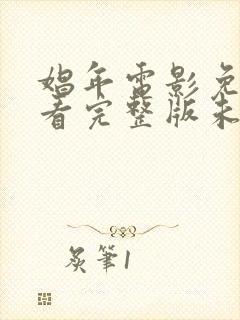 娼年电影免
看完整版未
炙筆1